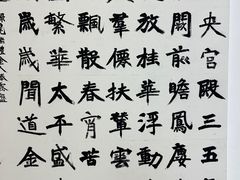 央宮殿三五
闕前瞻鳳
放桂華浮動
羣僊扶輦雲
飄散春宵堦
繁華太平盛
歲歲聞道金